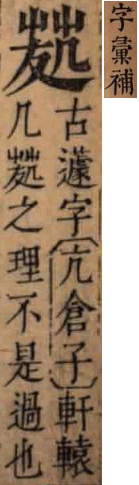 字彙補
古蘧字〔亢倉子〕軒轅
几之理不是過也